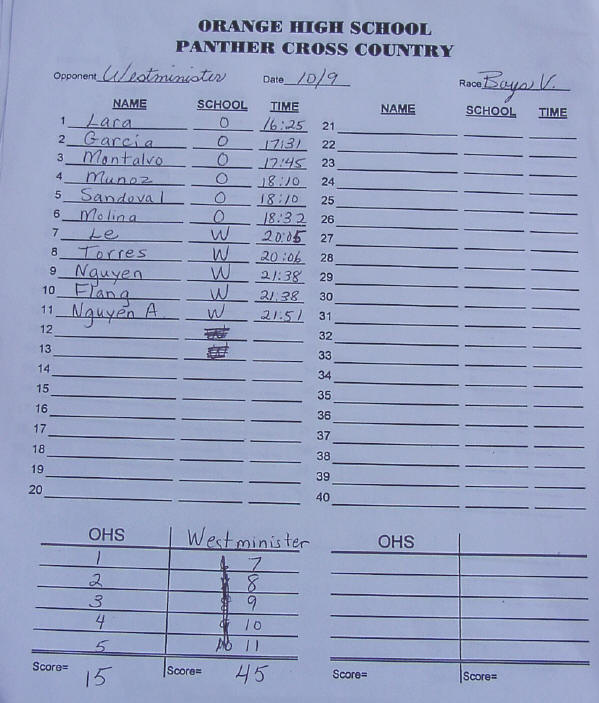 ORANGE HIGH SCHOOL
PANTHER CROSS COUNTRY
Opponent Westminister Date 10/9 Race Boys V.
NAME SCHOOL TIME NAME SCHOOL TIME
1 Lara O 16:25 21
2 Garcia O 17:31 22
3 Montalvo O 17:45 23
4 Munoz O 18:10 24
5 Sandoval O 18:10 25
6 Molina O 18:32 26
7 Le W 20:05 27
8 Torres W 20:06 28
9 Nguyen W 21:38 29
10 Flang W 21:38 30
11 Nguyen A. W 21:51 31
12 32
13 33
14 34
15 35
16 36
17 37
18 38
19 39
20 40
OHS Westminister OHS
1 7
2 8
3 9
4 10
5 11
Score= 15 Score= 45 Score= Score=